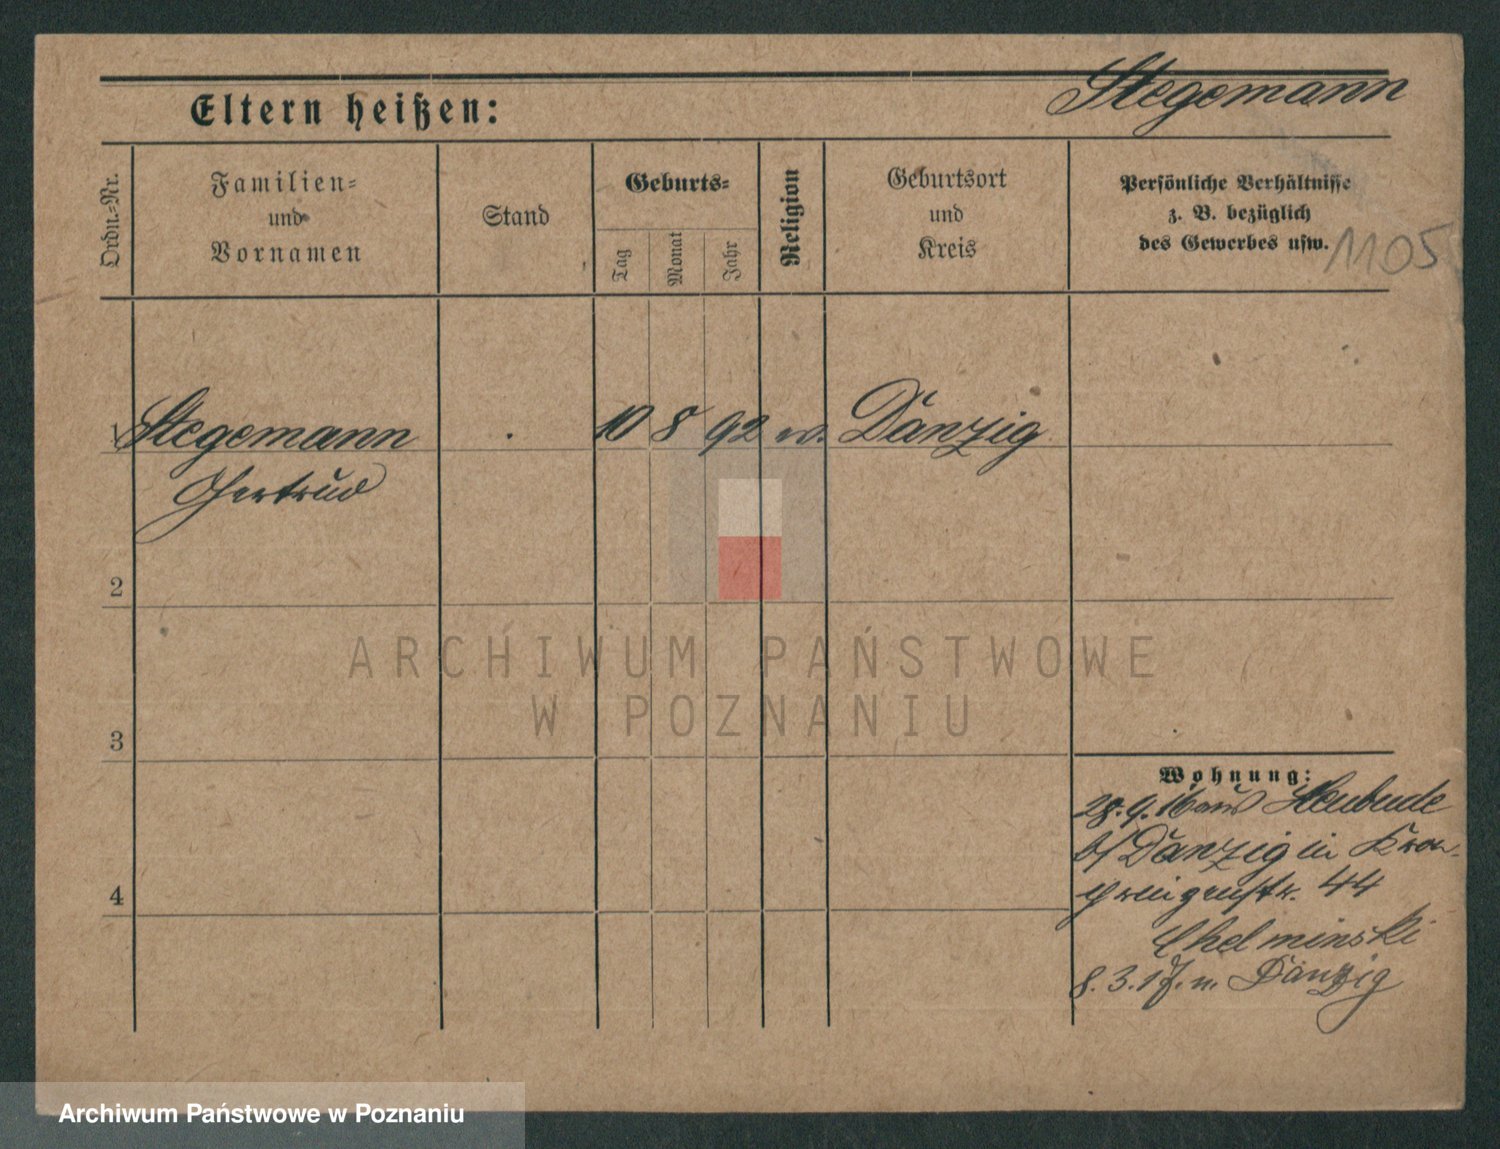 Stegemann
Eltern heißen:
Ordn.-Nr.
Familien-
und
Vornamen
Stand
Geburts-
Tag
Monat
Jahr
Religion
Geburtsort
und
Kreis
Persönliche Verhältnisse
z. B. bezüglich
des Gewerbes usw.
1105
1 Stegemann 10 8 92 ev. Danzig
Gertrud
2
3
4
ARCHIWUM PAŃSTWOWE
W POZNANIU
Wohnung:
28.9.16 aus Heubude
b/ Danzig in Kron-
prinzenstr. 44
Chelminski
8.3.17. n. Danzig
Archiwum Państwowe w Poznaniu